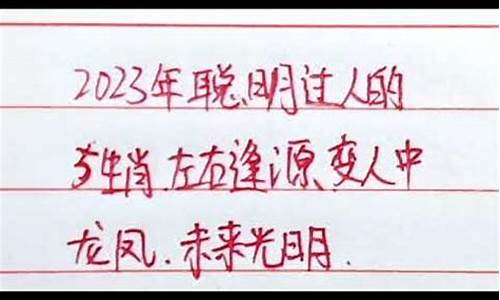 2023年聪明过人的
5生肖.左右逢源,变人中
龙凤.未来光明.